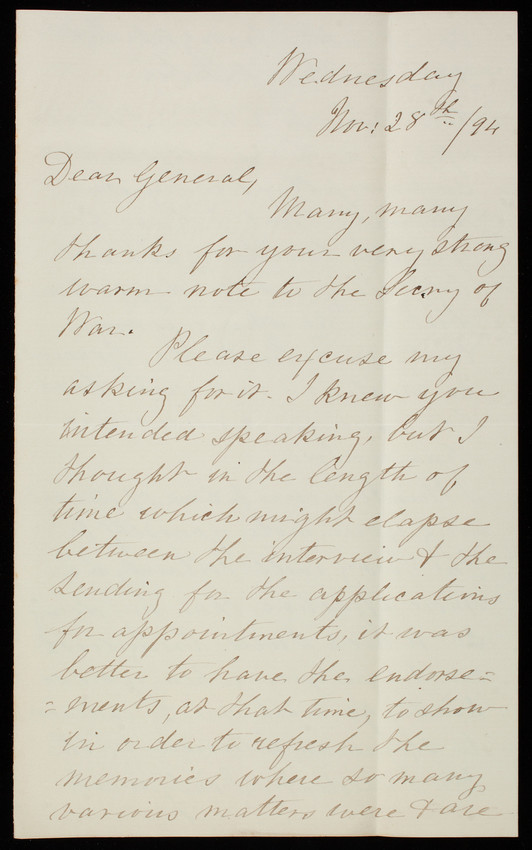 Wednesday
Nov: 28th/94
Dear General,
Many, many
thanks for your very strong
warm note to the Secry of
War.
Please excuse my
asking for it. I knew you
intended speaking, but I
thought in the length of
time which might elapse
between the interview & the
sending for the applications
for appointments, it was
better to have the endorse=
=ments, at that time, to show
in order to refresh the
memories where so many
various matters were & are